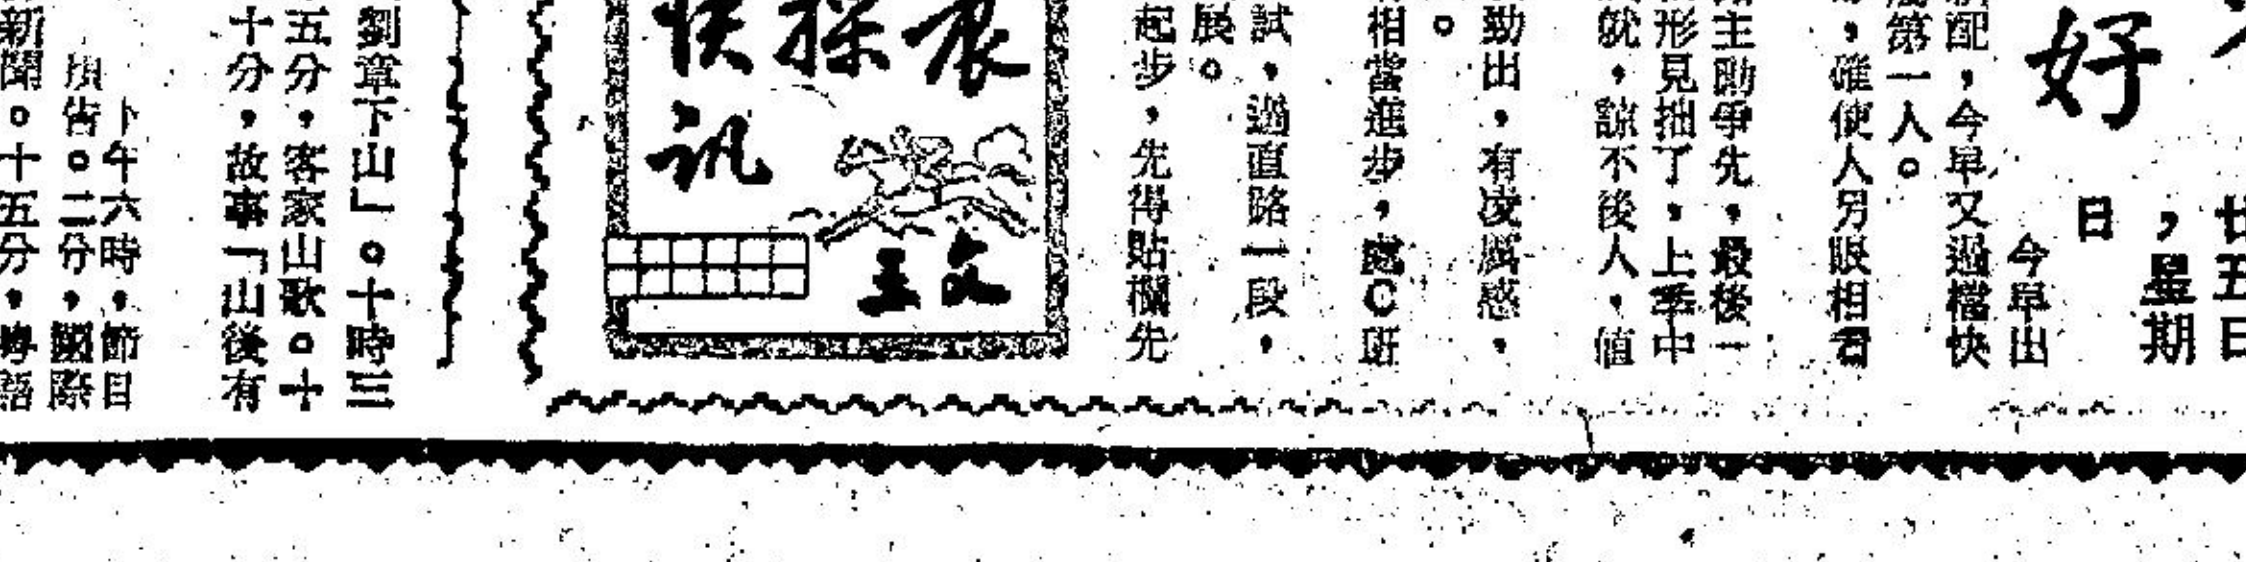 好
廿五日
，星期
日
今早出
配，今早又過檔快
第一人。
，確使人另眼相看
主動爭先，最後一
形見拙了，上季中
就，諒不後人，值
勤出，有凌厲感，
。
相當進步，處C班
試，過直路一段，
展。
起步，先得貼欄先
晨操快訊
文王
劉章下山」。十時三
五分，客家山歌。十
十分，故事「山後有
下午六時，節目
預告。二分，國際
新聞。十五分，粵語